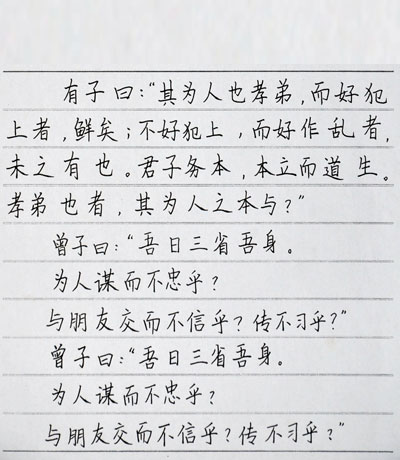 有子曰：“其为人也孝弟，而好犯
上者，鲜矣；不好犯上，而好作乱者，
未之有也。君子务本，本立而道生。
孝弟也者，其为人之本与？”
曾子曰：“吾日三省吾身。
为人谋而不忠乎？
与朋友交而不信乎？传不习乎？”
曾子曰：“吾日三省吾身。
为人谋而不忠乎？
与朋友交而不信乎？传不习乎？”